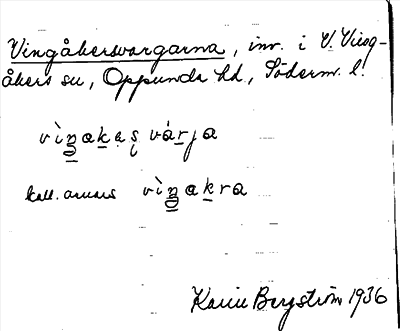 Vingåkersvargarna, inv. i V. Ving-
åkers sn, Oppunda hd, Söderm. l.
vìŋakas várja
kall. annars vìŋakra
Karin Bergström 1936